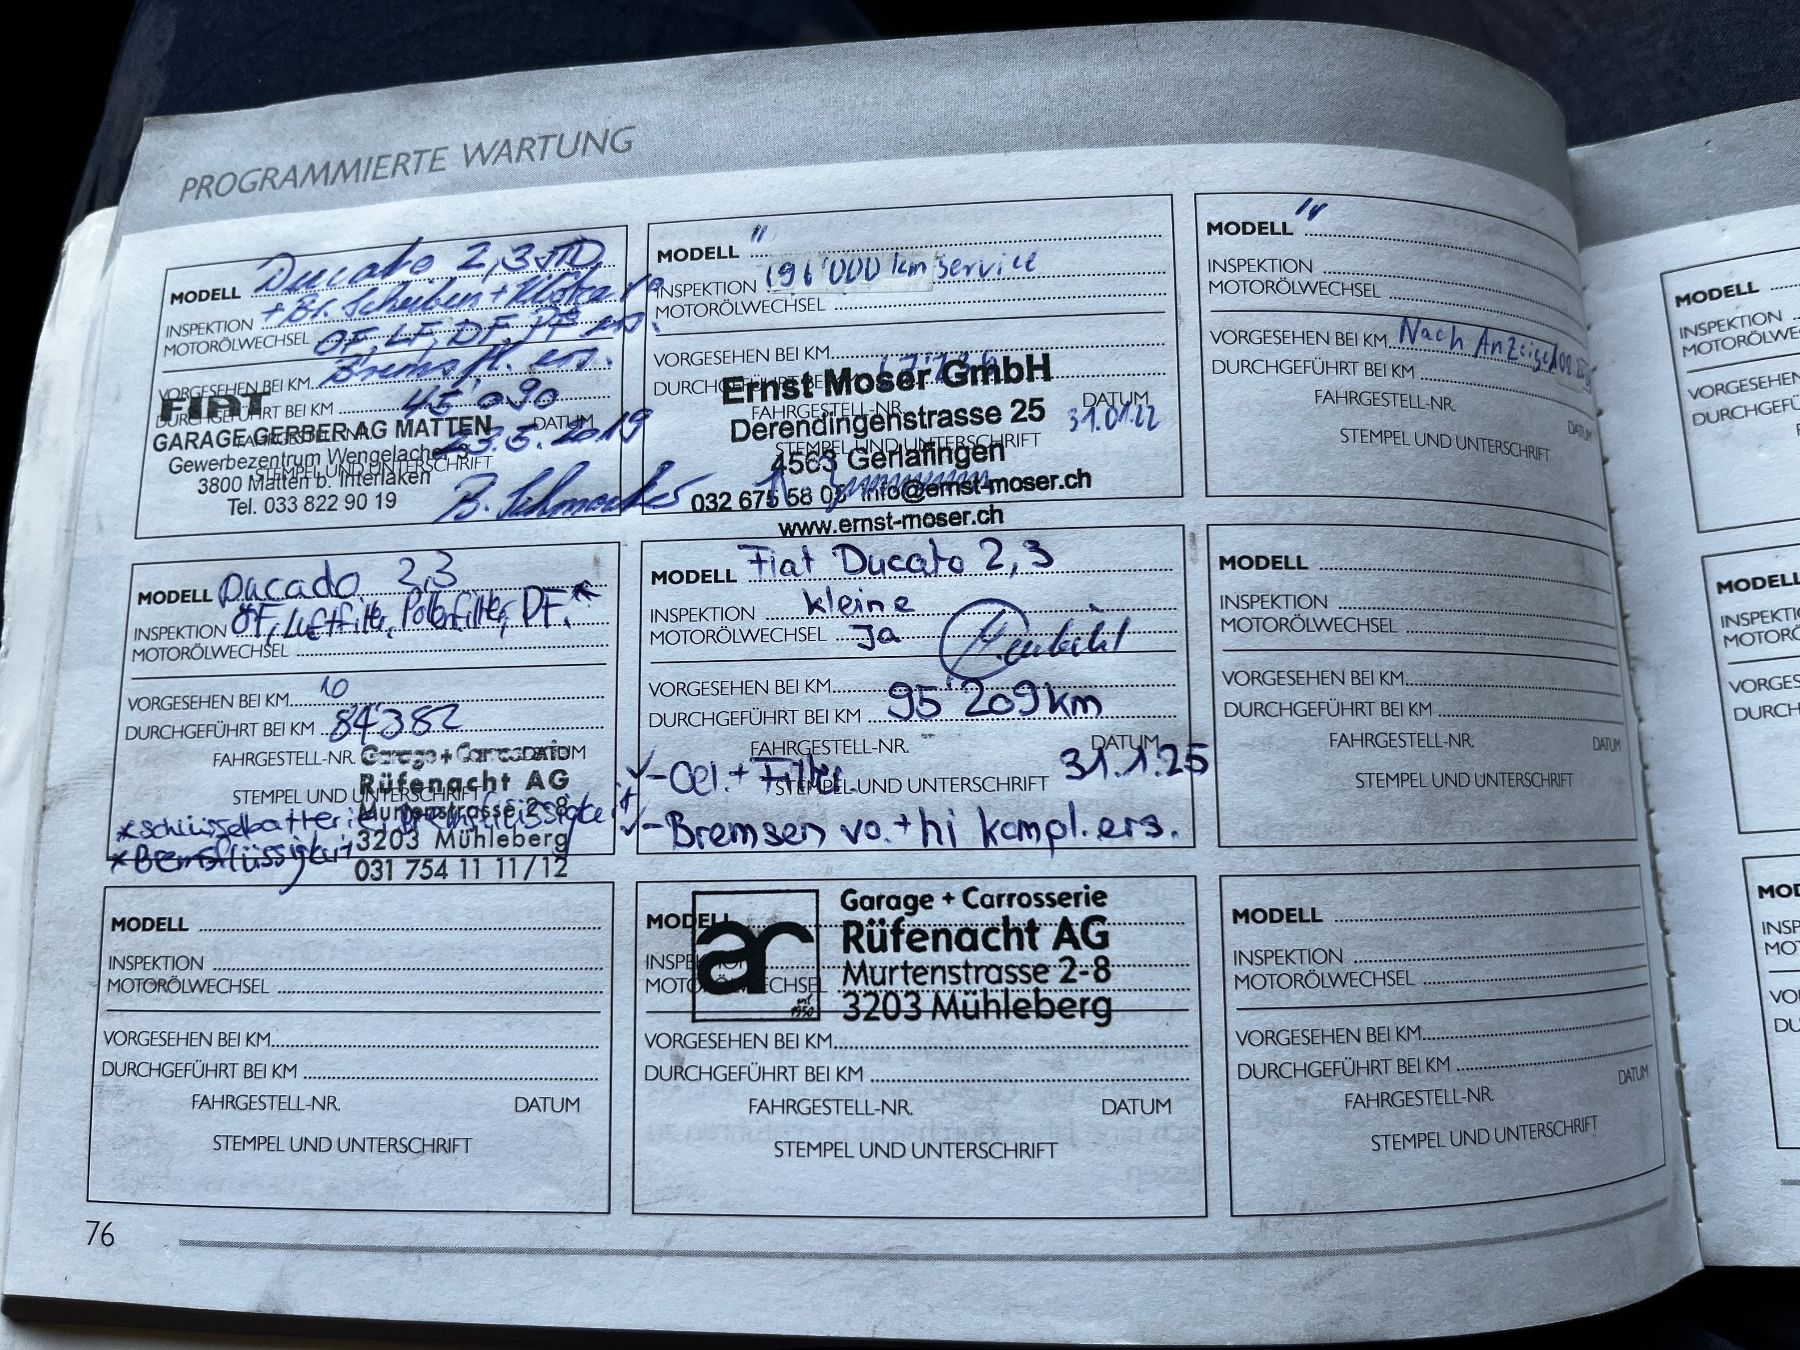 PROGRAMMIERTE WARTUNG
MODELL Ducato 2,3 JTD
+ Br. Scheiben + Klötze
INSPEKTION
MOTORÖLWECHSEL ÖF, LF, DF, PF ers.
Bremsfl. ers.
VORGESEHEN BEI KM
DURCHGEFÜHRT BEI KM 45'090
FAHRGESTELL-NR. DATUM
23.5.2019
STEMPEL UND UNTERSCHRIFT
FIAT
GARAGE GERBER AG MATTEN
Gewerbezentrum Wengelacher 3
3800 Matten b. Interlaken
Tel. 033 822 90 19
MODELL "
INSPEKTION 96'000 km service
MOTORÖLWECHSEL
VORGESEHEN BEI KM
DURCHGEFÜHRT BEI
FAHRGESTELL-NR. DATUM
31.01.22
STEMPEL UND UNTERSCHRIFT
Ernst Moser GmbH
Derendingenstrasse 25
4563 Gerlafingen
032 675 58 info@ernst-moser.ch
www.ernst-moser.ch
MODELL "
INSPEKTION
MOTORÖLWECHSEL
VORGESEHEN BEI KM Nach Anzeige
DURCHGEFÜHRT BEI KM
FAHRGESTELL-NR.
DATUM
STEMPEL UND UNTERSCHRIFT
MODELL Ducado 2,3
INSPEKTION ÖF, Luftfilter, Pollenfilter, DF. *
MOTORÖLWECHSEL
VORGESEHEN BEI KM 10
DURCHGEFÜHRT BEI KM 84'382
FAHRGESTELL-NR. DATUM
STEMPEL UND UNTERSCHRIFT
Garage + Carrosserie
Rüfenacht AG
Murtenstrasse 2-8
3203 Mühleberg
031 754 11 11/12
*Schlüsselbatterie, Bremsflüssigkeit
*Bremsflüssigkeit
MODELL Fiat Ducato 2,3
INSPEKTION kleine
MOTORÖLWECHSEL Ja
VORGESEHEN BEI KM
DURCHGEFÜHRT BEI KM 95'209 km
FAHRGESTELL-NR. DATUM
31.1.25
STEMPEL UND UNTERSCHRIFT
✓- Oel + Filter
✓- Bremsen vo. + hi kompl. ers.
MODELL
INSPEKTION
MOTORÖLWECHSEL
VORGESEHEN BEI KM
DURCHGEFÜHRT BEI KM
FAHRGESTELL-NR. DATUM
STEMPEL UND UNTERSCHRIFT
MODELL
INSPEKTION
MOTORÖLWECHSEL
VORGESEHEN BEI KM
DURCHGEFÜHRT BEI KM
FAHRGESTELL-NR. DATUM
STEMPEL UND UNTERSCHRIFT
MODELL
INSPEKTION
MOTORÖLWECHSEL
ar
Garage + Carrosserie
Rüfenacht AG
Murtenstrasse 2-8
3203 Mühleberg
VORGESEHEN BEI KM
DURCHGEFÜHRT BEI KM
FAHRGESTELL-NR. DATUM
STEMPEL UND UNTERSCHRIFT
MODELL
INSPEKTION
MOTORÖLWECHSEL
VORGESEHEN BEI KM
DURCHGEFÜHRT BEI KM
FAHRGESTELL-NR. DATUM
STEMPEL UND UNTERSCHRIFT
76
MODELL
MODELL